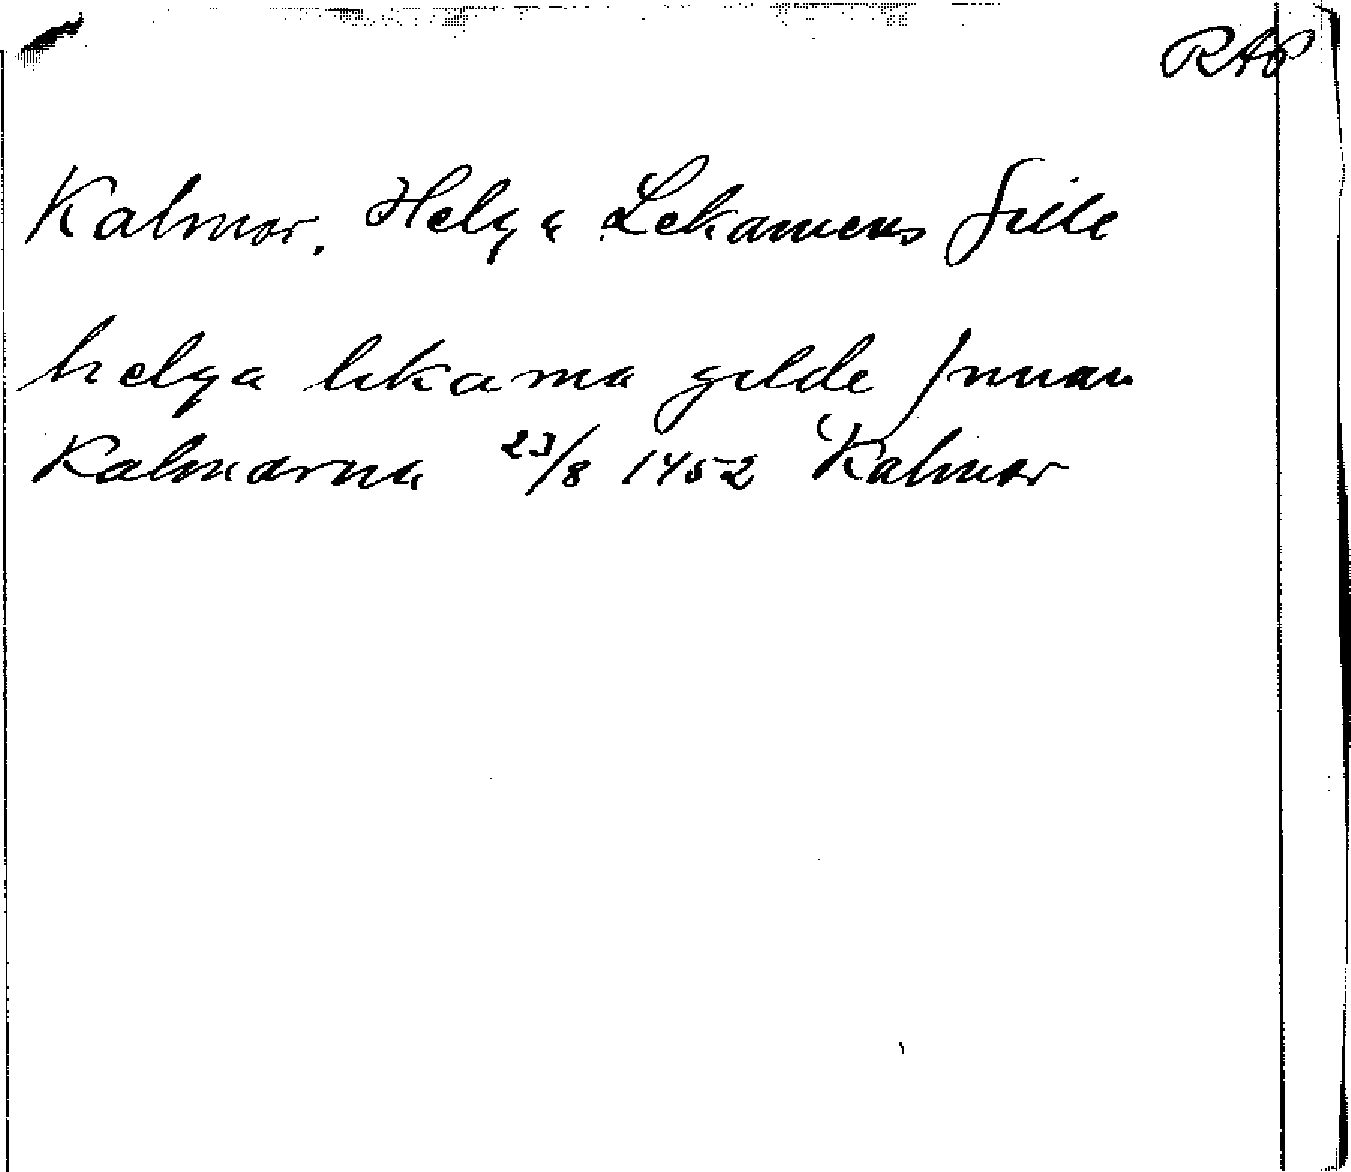 RAP
Kalmar. Helga Lekamens Gille
helga lekama gilde jnnan
Kalmarna 23/8 1452 Kalmar